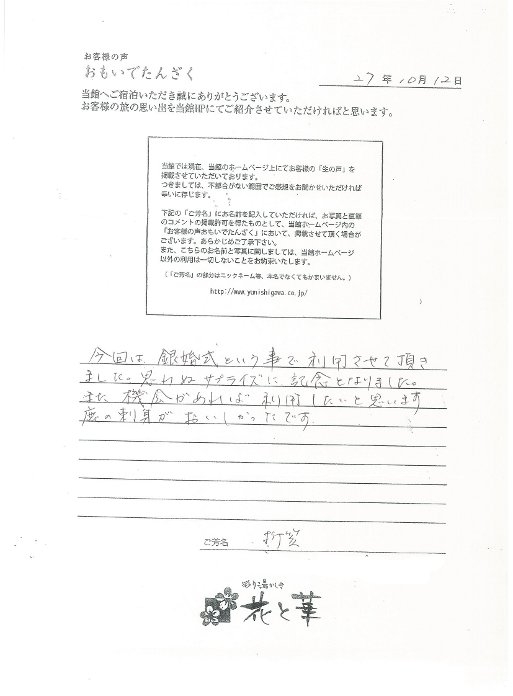 お客様の声
おもいでたんざく
27年10月12日
当館へご宿泊いただき誠にありがとうございます。
お客様の旅の思い出を当館HPにてご紹介させていただければと思います。
当館では現在、当館のホームページ上にてお客様の「生の声」を
掲載させていただいております。
つきましては、不都合がない範囲でご感想をお聞かせいただければ
幸いに存じます。
下記の「ご芳名」にお名前を記入していただければ、お写真と直筆
のコメントの掲載許可を得たものとして、当館ホームページ内の
『お客様の声おもいでたんざく』において、掲載させて頂く場合が
ございます。あらかじめご了承下さい。
また、こちらのお名前と写真に関しましては、当館ホームページ
以外の利用は一切しないことをお約束いたします。
(「ご芳名」の部分はニックネーム等、本名でなくてもかまいません。)
http://www.yunishigawa.co.jp/
今回は、銀婚式という事で利用させて頂き
ました。思わぬサプライズに記念となりました。
また、機会があれば利用したいと思います
鹿の刺身がおいしかったです
ご芳名
花と華